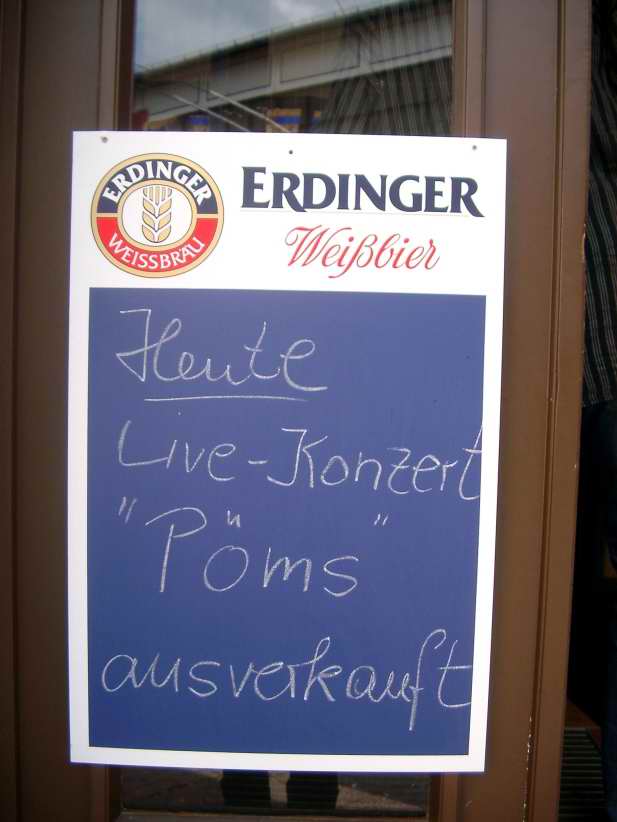 ERDINGER
WEISSBRÄU
ERDINGER
Weißbier
Heute
Live-Konzert
"Pöms"
ausverkauft